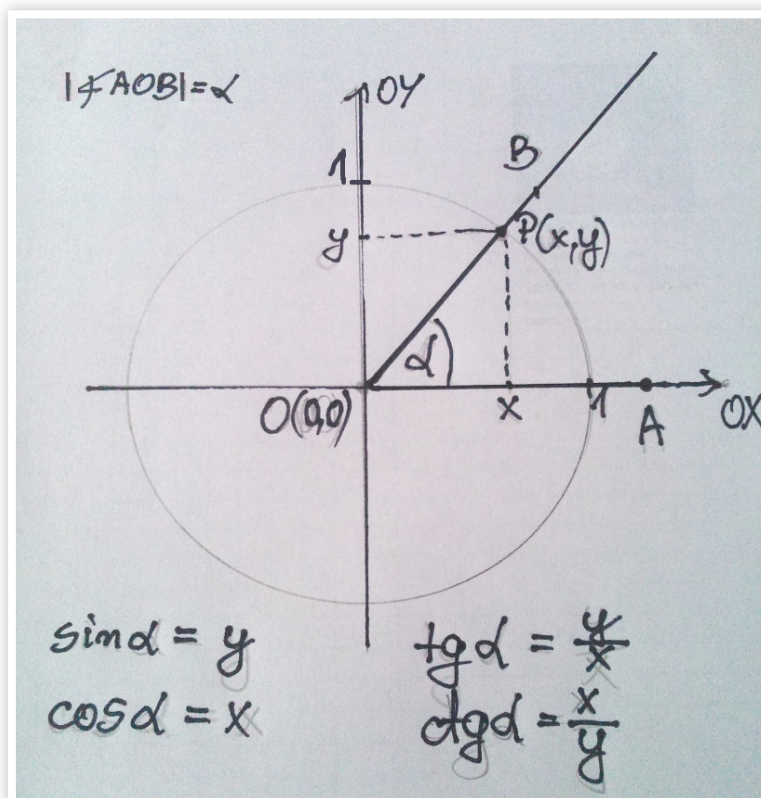 |∢AOB|=α
OY
1
B
y
P(x,y)
α
O(0,0)
x
1
A
OX
sinα = y
cosα = x
tgα = y/x
ctgα = x/y